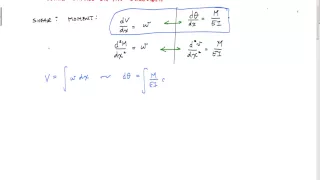 SHEAR : MOMENT : dV/dx = w ⟷ dθ/dx = M/EI
d²M/dx² = w ⟷ d²v/dx² = M/EI
V = ∫ w dx ~ dθ = ∫ M/EI =